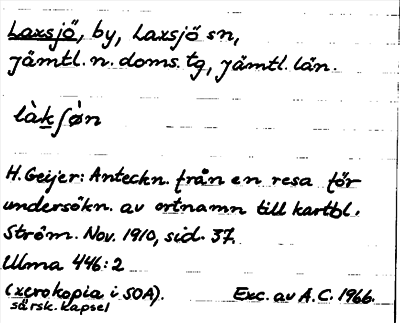 Laxsjö, by, Laxsjö sn,
Jämtl. n. doms. tg, Jämtl. län.
làkʃø̀n
H. Geijer: Anteckn. från en resa för
undersökn. av ortnamn till kartbl.
Ström. Nov. 1910, sid. 37.
Ulma 446:2
(xerokopia i SOA). Exc. av A.C. 1966.
särsk. kapsel